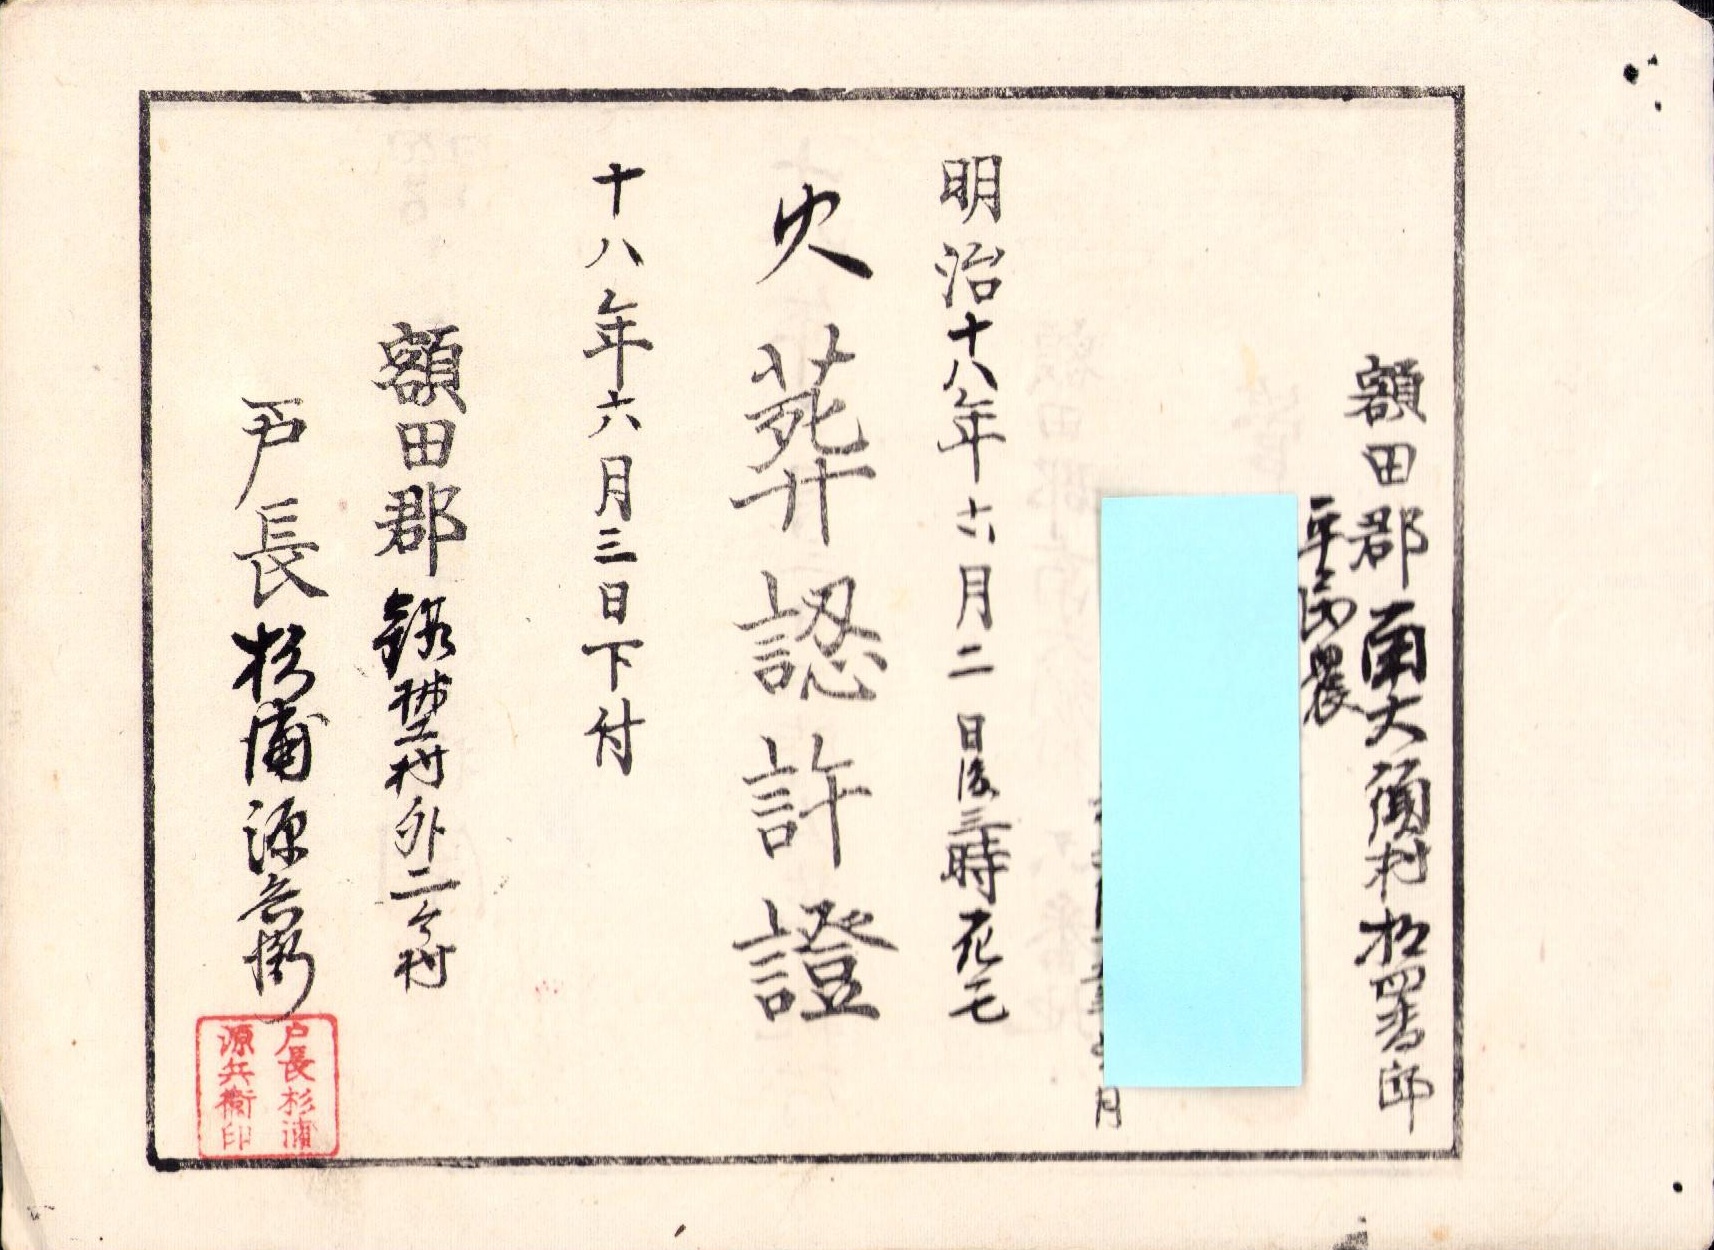 額田郡南大須村松四番邸
平民農
月
明治十八年六月二日後三時死亡
火葬認許證
十八年六月三日下付
額田郡鍛埜村外二ケ村
戸長杉浦源兵衛
戸長杉浦
源兵衛印